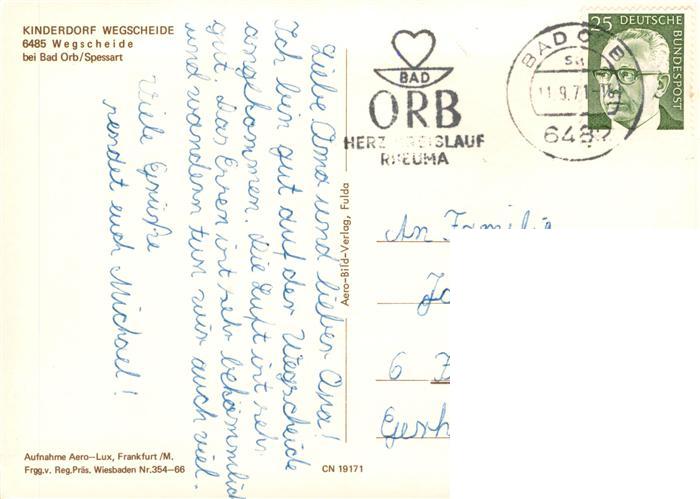 KINDERDORF WEGSCHEIDE
6485 Wegscheide
bei Bad Orb/Spessart
Liebe Oma und lieber Opa!
Ich bin gut auf der Wegscheide
angekommen. Die Luft ist sehr
gut. Das Essen ist sehr bekömmlich
und wandern tun wir auch viel.
Viele Grüße
sendet euch Michael!
Aufnahme Aero-Lux, Frankfurt/M.
Frgg.v. Reg.Präs. Wiesbaden Nr.354-66
CN 19171
Aero-Bild-Verlag, Fulda
BAD
ORB
HERZ KREISLAUF
RHEUMA
BAD ORB
11.9.71
6482
25 DEUTSCHE
BUNDESPOST
An Familie
6